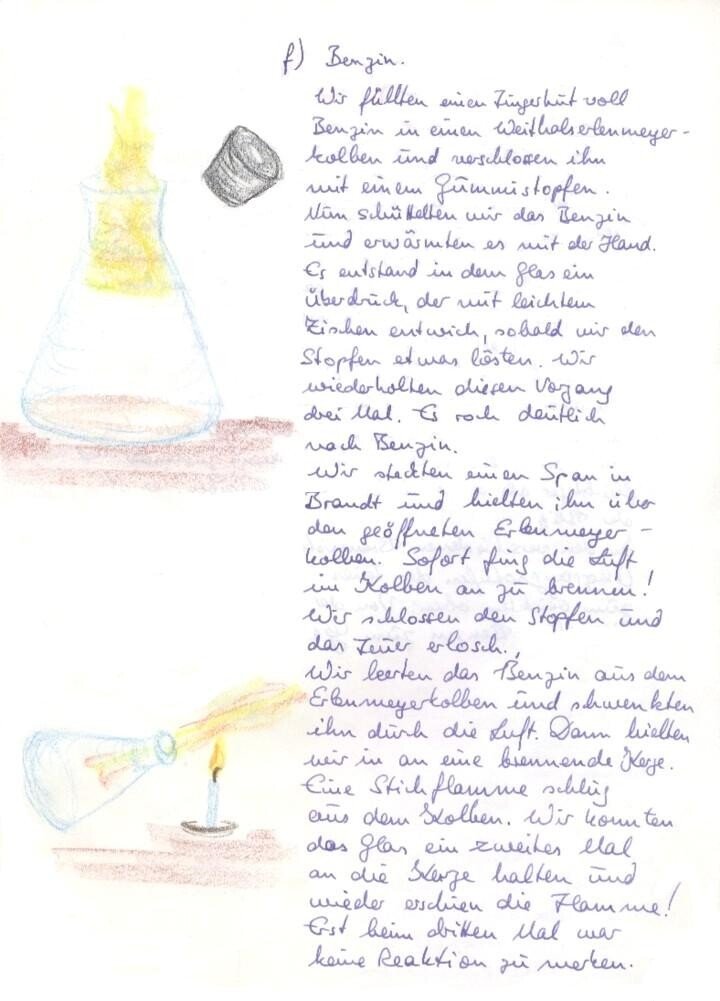 f) Benzin.
Wir füllten einen Fingerhut voll
Benzin in einen Weithalserlenmeyer-
kolben und verschlossen ihn
mit einem Gummistopfen.
Nun schüttelten wir das Benzin
und erwärmten es mit der Hand.
Es entstand in dem Glas ein
Überdruck, der mit leichtem
Zischen entwich, sobald wir den
Stopfen etwas lösten. Wir
wiederholten diesen Vorgang
drei Mal. Es roch deutlich
nach Benzin.
Wir steckten einen Span in
Brandt und hielten ihn über
den geöffneten Erlenmeyer-
kolben. Sofort fing die Luft
im Kolben an zu brennen!
Wir schlossen den Stopfen und
das Feuer erlosch.
Wir leerten das Benzin aus dem
Erlenmeyerkolben und schwenkten
ihn durch die Luft. Dann hielten
wir in an eine brennende Kerze.
Eine Stichflamme schlug
aus dem Kolben. Wir konnten
das Glas ein zweites Mal
an die Kerze halten und
wieder erschien die Flamme!
Erst beim dritten Mal war
keine Reaktion zu merken.